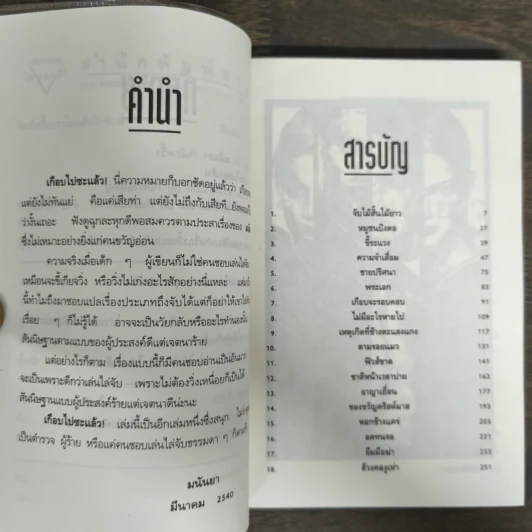 คำนำ
เกือบไปซะแล้ว! นี่ความหมายก็บอกชัดอยู่แล้วว่า
แต่ยังไม่ทันแย่ คือแค่เสียท่า แต่ยังไม่ถึงกับเสียที
ว่างั้นเถอะ ฟังดูฉุกละหุกดีพอสมควรตามประสาเรื่องของ
ซึ่งไม่เหมาะอย่างยิ่งแก่คนขวัญอ่อน
ความจริงเมื่อเด็ก ๆ ผู้เขียนก็ไม่ใช่คนชอบเล่นไล่
เหมือนจะขี้เกียจวิ่ง หรือวิ่งไม่เก่งอะไรสักอย่างนี่แหละ
นี้ทำไมถึงมาชอบแปลเรื่องประเภทถึงจับได้แต่ก็อย่าให้
เรื่อย ๆ ก็ไม่รู้ได้ อาจจะเป็นวัยกลับหรืออะไรทำนอง
สันนิษฐานตามแบบของผู้ประสงค์ดีแต่เจตนาร้าย
แต่อย่างไรก็ตาม เรื่องแบบนี้ก็มีคนชอบอ่านเป็นอันมาก
จะเป็นเพราะดีกว่าเล่นไล่จับ เพราะไม่ต้องวิ่งเหนื่อยก็เป็นได้
สันนิษฐานแบบผู้ประสงค์ร้ายแต่เจตนาดีน่ะนะ
เกือบไปซะแล้ว! เล่มนี้เป็นอีกเล่มหนึ่งซึ่งสนุก
เป็นตำรวจ ผู้ร้าย หรือแค่คนชอบเล่นไล่จับธรรมดา ๆ ก็ตาม
มนันยา
มีนาคม 2540
สารบัญ
1. จับไม้สั้นไม้ยาว 7
2. หมูชนปังตอ 27
3. ขี้ระแวง 39
4. ความจำเสื่อม 47
5. ชายปริศนา 75
6. พระเอก 83
7. เกือบจะรอบคอบ 91
8. ไม่มีอะไรหายไป 109
9. เหตุเกิดที่ข้างตะแลงแกง 117
10. ตามรอยแมว 131
11. ฟิวส์ขาด 141
12. ชาติหน้าเวลาบ่าย 163
13. อาญาเถื่อน 177
14. ของขวัญคริสต์มาส 193
15. หอกข้างแคร่ 205
16. อดทนรอ 221
17. ยืมมือฆ่า 233
18. ล้วงคองูเห่า 251